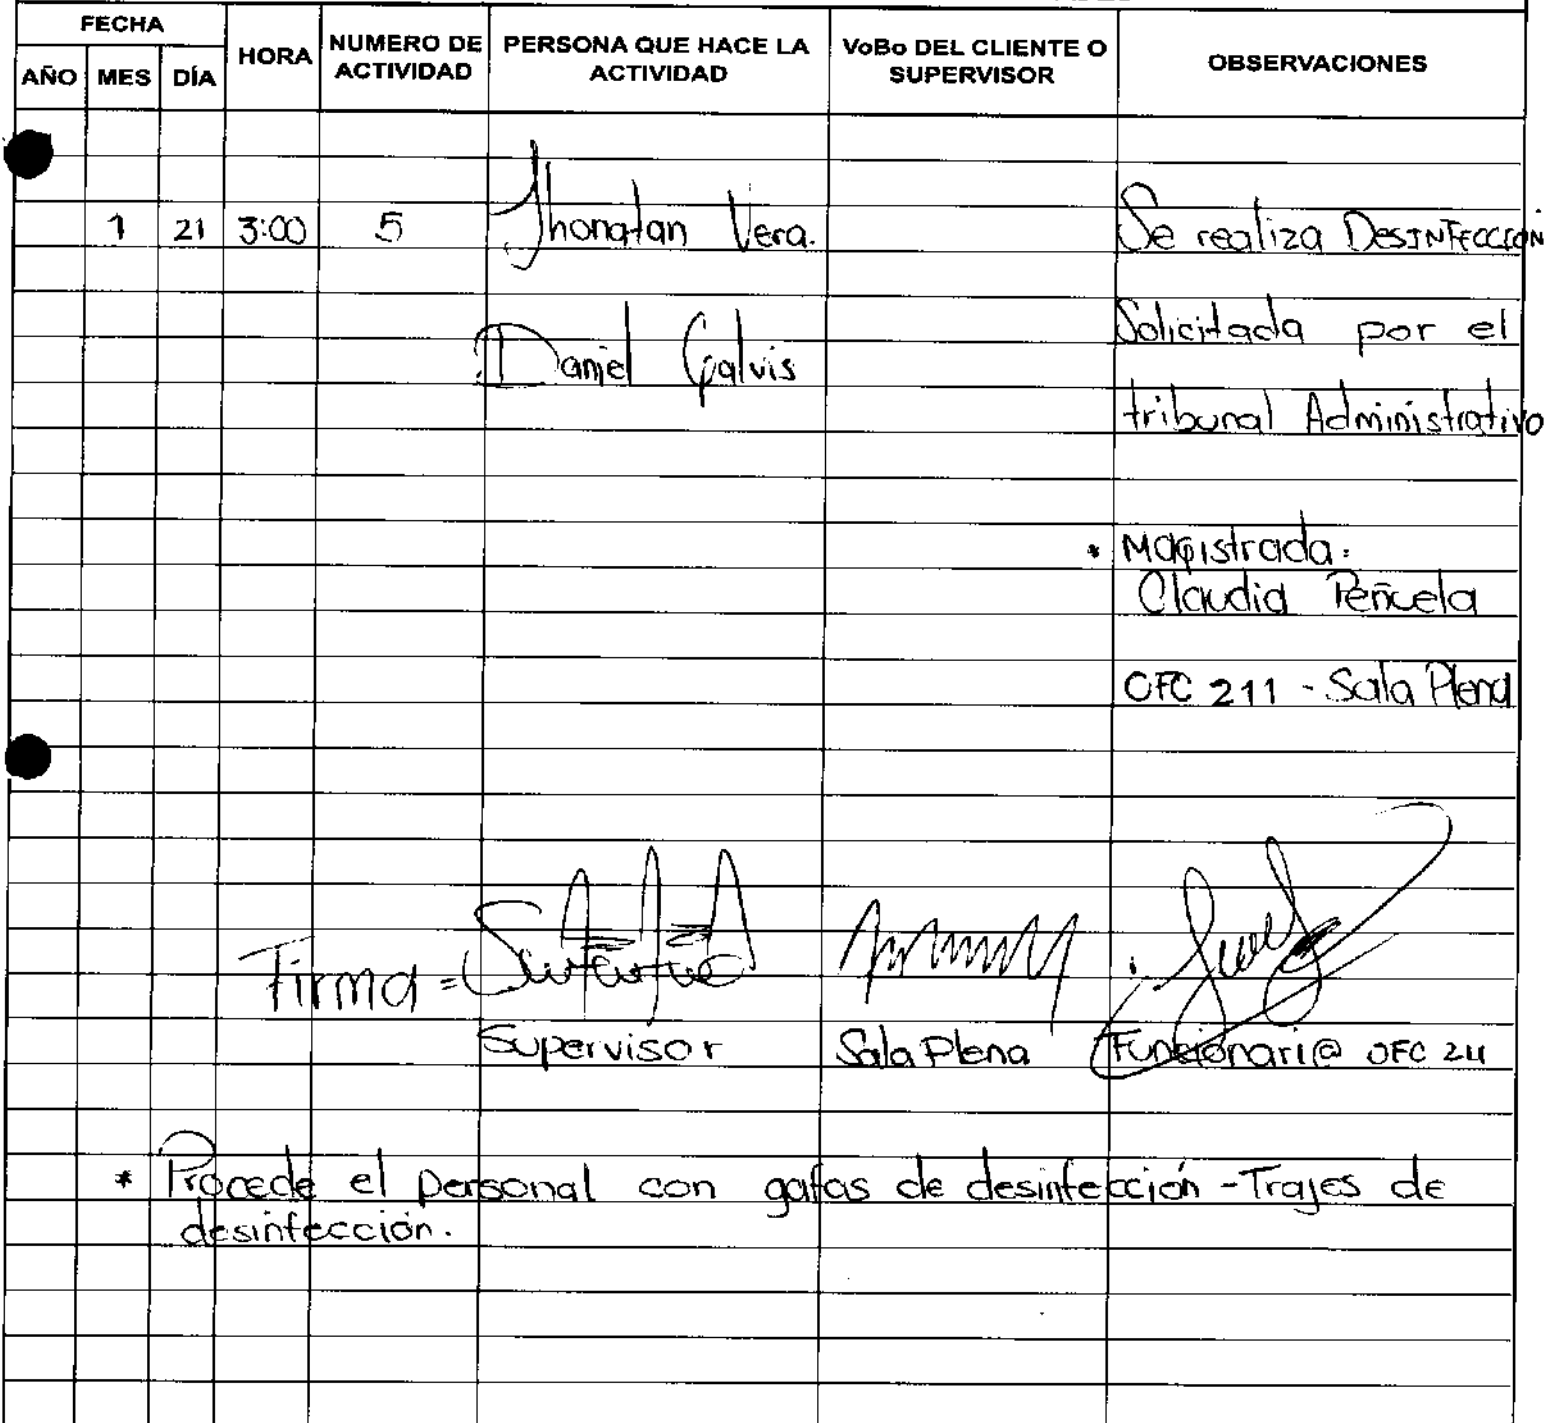 FECHA
HORA
NUMERO DE ACTIVIDAD
PERSONA QUE HACE LA ACTIVIDAD
VoBo DEL CLIENTE O SUPERVISOR
OBSERVACIONES
AÑO MES DÍA
1 21 3:00 5 Jhonatan Vera. Se realiza DESINFECCIÓN
Daniel Galvis Solicitada por el
tribunal Administrativo
* Magistrada:
Claudia Peñuela
OFC 211 - Sala Plena
Firma =
Supervisor Sala Plena Funcionari@ OFC 211
* Procede el personal con gafas de desinfección - Trajes de
desinfección.